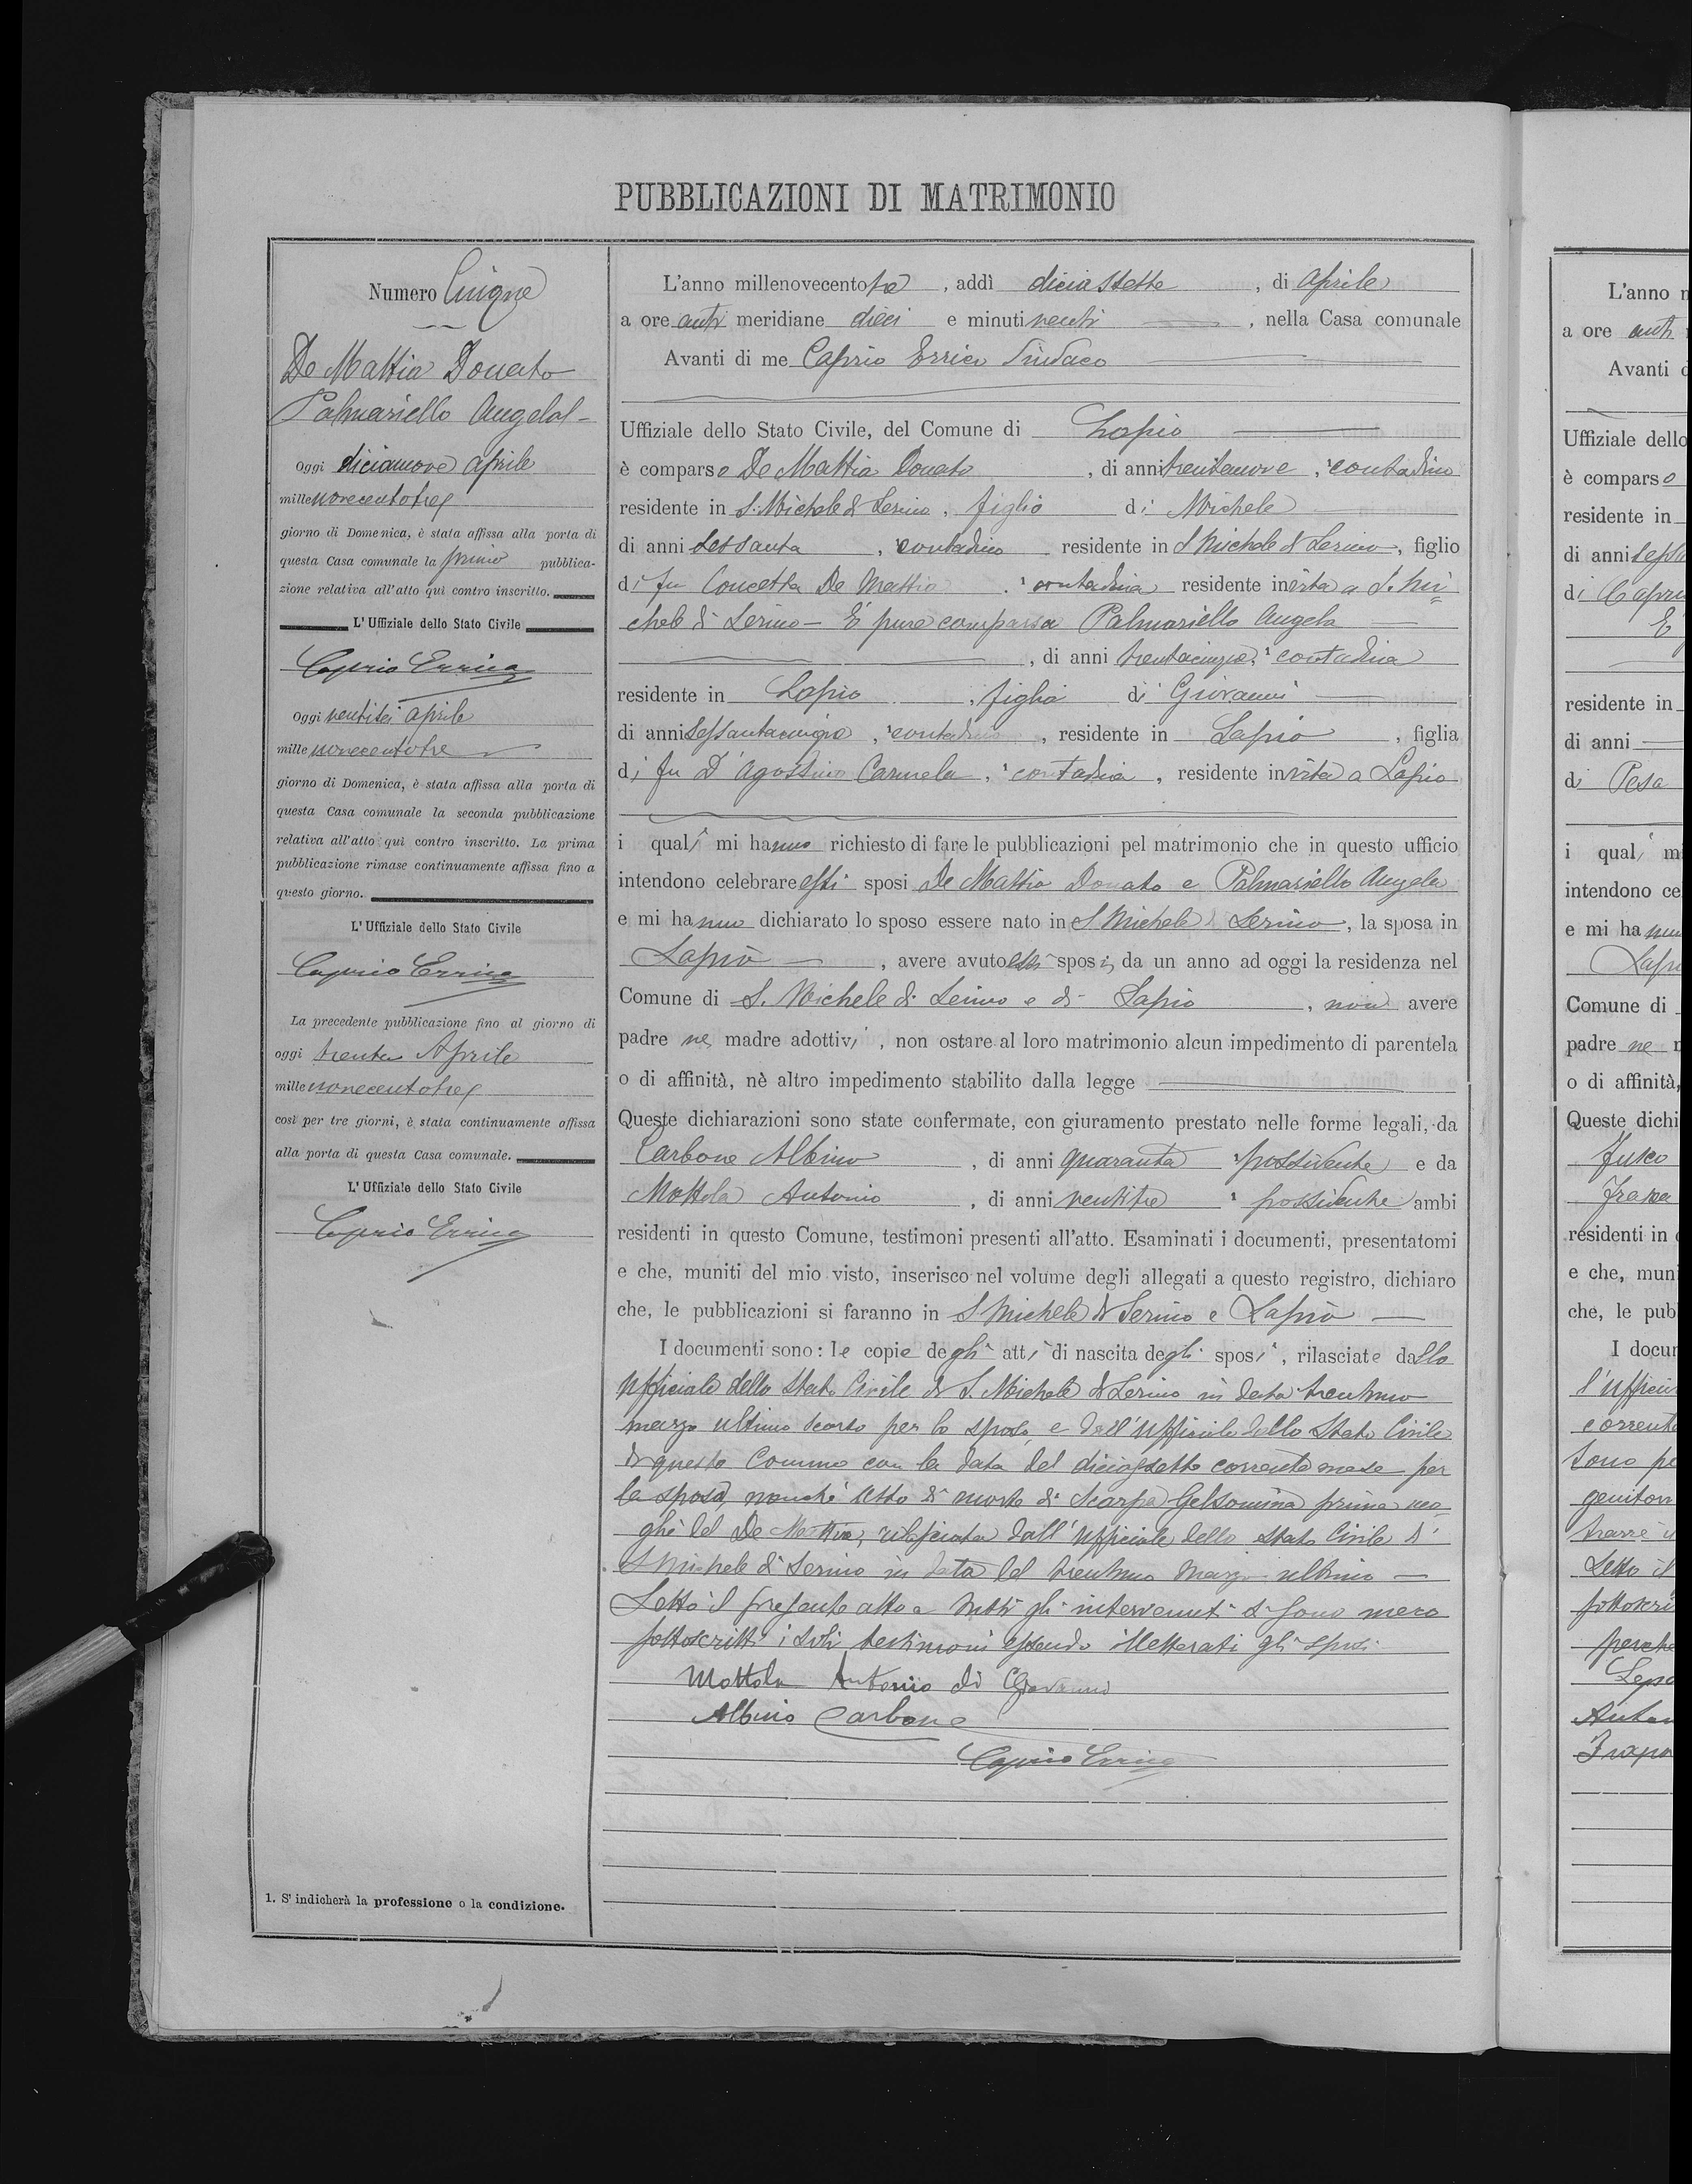 PUBBLICAZIONI DI MATRIMONIO
Numero Cinque
De Mattia Donato
Palmariello Angela
Oggi diciannove aprile
mille novecentotre
giorno di Domenica, è stata affissa alla porta di
questa Casa comunale la prima pubblica-
zione relativa all'atto quì contro inscritto.
L'Uffiziale dello Stato Civile
Caprio Errico
Oggi ventisei aprile
mille novecentotre
giorno di Domenica, è stata affissa alla porta di
questa Casa comunale la seconda pubblicazione
relativa all'atto quì contro inscritto. La prima
pubblicazione rimase continuamente affissa fino a
questo giorno.
L'Uffiziale dello Stato Civile
Caprio Errico
La precedente pubblicazione fino al giorno di
oggi trenta Aprile
mille novecentotre
così per tre giorni, è stata continuamente affissa
alla porta di questa Casa comunale.
L'Uffiziale dello Stato Civile
Caprio Errico
1. S'indicherà la professione o la condizione.
L'anno millenovecentotre, addì diciassette, di aprile
a ore anti meridiane dieci e minuti venti, nella Casa comunale
Avanti di me Caprio Errico Sindaco
Uffiziale dello Stato Civile, del Comune di Lapio
è comparso De Mattia Donato, di anni trentanove, ¹contadino
residente in S. Michele di Serino, figlio di Michele
di anni sessanta, ¹contadino residente in S Michele di Serino, figlio
di fu Concetta De Mattia, ¹contadina residente in vita a S. Mi=
chele di Serino — È pure comparsa Palmariello Angela
, di anni trentacinque, ¹contadina
residente in Lapio, figlia di Giovanni
di anni sessantacinque, ¹contadino, residente in Lapio, figlia
di fu D'Agostino Carmela, ¹contadina, residente in vita a Lapio
i quali mi hanno richiesto di fare le pubblicazioni pel matrimonio che in questo ufficio
intendono celebrare essi sposi De Mattia Donato e Palmariello Angela
e mi hanno dichiarato lo sposo essere nato in S Michele di Serino, la sposa in
Lapio, avere avuto essi sposi, da un anno ad oggi la residenza nel
Comune di S. Michele di Serino e di Lapio, non avere
padre ne madre adottivi, non ostare al loro matrimonio alcun impedimento di parentela
o di affinità, nè altro impedimento stabilito dalla legge
Queste dichiarazioni sono state confermate, con giuramento prestato nelle forme legali, da
Carbone Albino, di anni quaranta ¹possidente e da
Mottola Antonio, di anni ventitre ¹possidente ambi
residenti in questo Comune, testimoni presenti all'atto. Esaminati i documenti, presentatomi
e che, muniti del mio visto, inserisco nel volume degli allegati a questo registro, dichiaro
che, le pubblicazioni si faranno in S Michele di Serino e Lapio
I documenti sono: le copie degli atti di nascita degli sposi, rilasciate dallo
Ufficiale dello Stato Civile di S. Michele di Serino in data trentuno
marzo ultimo scorso per lo sposo, e dall'Ufficiale dello Stato Civile
di questo Comune con la data del diciassette corrente mese per
la sposa, nonchè l'atto di morte di Scarpa Gelsomina prima mo-
glie del De Mattia, rilasciata dall'Ufficiale dello Stato Civile di
S Michele di Serino in data del trentuno Marzo ultimo —
Letto il presente atto a tutti gli intervenuti si sono meco
sottoscritti i soli testimoni essendo illetterati gli sposi
Mottola Antonio di Giovanni
Albino Carbone
Caprio Errico
L'anno
a ore anti
Avanti
Uffiziale dello
è comparso
residente in
di anni
di
E
residente in
di anni
di Pesa
i quali
intendono ce
e mi hanno
Comune di
padre ne
o di affinità,
Queste dichi
Fusco
residenti in
e che, muni
che, le pub
I docum
corrente
sono
genitori
Letto il